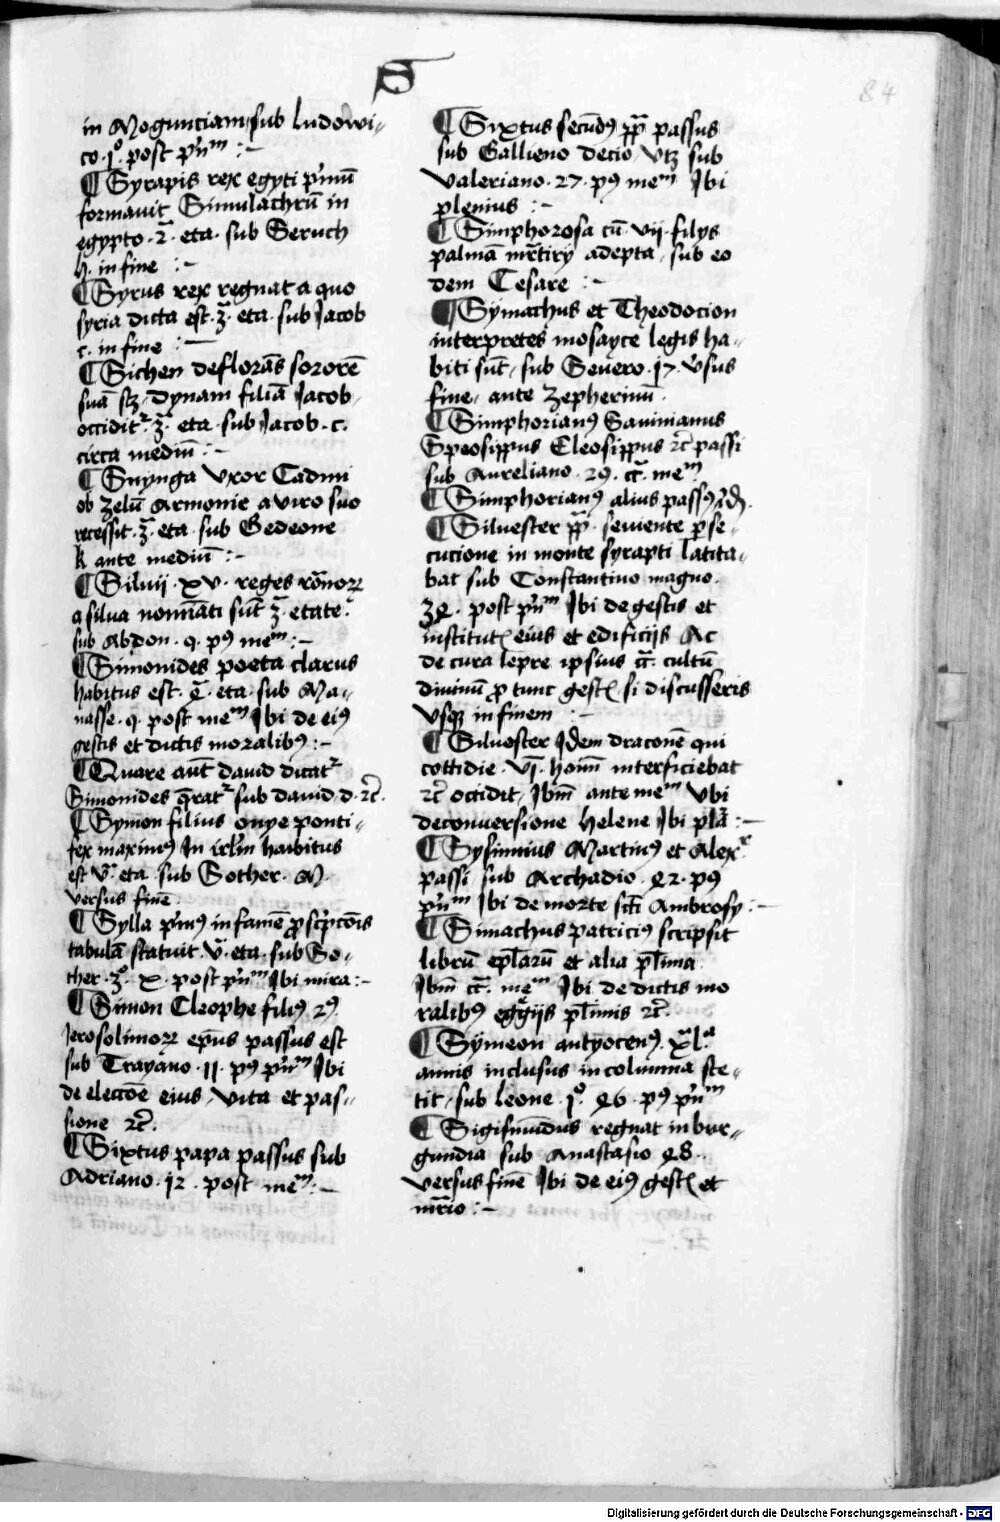 S
84
in Moguntiam sub ludowi-
co .1º. post pͥnͫ :-
¶ Syrapis rex egypti pͥmū
formauit Simulachrū in
egypto .2ᷓ. eta. sub Seruch
h. in fine :-
¶ Syrus rex regnat a quo
syria dicta est .3ᷓ. eta. sub Jacob
c. in fine :-
¶ Sichen deflorās sororē
suā sꝫ, Dynam filiā Jacob,
occidit͛ .3ᷓ. eta sub Jacob. c.
circa mediū :-
¶ Snynga vxor Cadmi
ob zelū Armonie a viro suo
recessit .3ᷓ. eta. sub Gedeone
k ante mediū :-
¶ Siluij .xv. reges rōnoꝝ
a silua nomīati sūt .3ᷓ. etate.
sub Abdon .q. pꝰ meͫ :-
¶ Simonides poeta clarus
habitus est .4ᷓ. eta. sub Ma-
nasse .q. post meͫ Ibi de eiꝰ
gestis et dictis moralibꝰ :-
¶ Quare aūt dauid dicat͛
Simonides q̄rat͛ sub dauid. d. ⁊c̄.
¶ Symon filius onye ponti-
fex maximꝰ In irl̄m habitus
est .vᷓ. eta. sub Sother. M.
versus finē.
¶ Sylla pͥmꝰ infamē ꝓscͥptōis
tabulā statuit .vᷓ. eta. sub So-
ther .3º. x. post pͥnͫ Ibi mira :-
¶ Simon Cleophe filiꝰ 2ꝰ.
Ierosolimoꝝ ep̄us passus est
sub Trayano .11. pꝰ pͥnͫ Ibi
de electōe eius, vita et pas-
sione ⁊c̄.
¶ Sixtus papa passus sub
Adriano .12. post meͫ :-
¶ Sixtus secūdꝰ pp̄ passus
sub Gallieno decio, vtꝫ sub
Valeriano .27. pꝰ meͫ Ibi
plenius :-
¶ Simphorosa cū .vij. filys
palmā mr̄tiry adepta, sub eo
dem Cesare :-
¶ Symachus et Theodocion
interpretes mosayce legis ha-
biti sūt, sub Seuero .17. vͤsus
fine, ante Zepherinū.
¶ Simphorianꝰ Sauinianus
Speosippus Cleosippus ⁊c̄ passi
sub Aureliano .29. cͣ. meͫ
¶ Simphorianꝰ alius passꝰ
¶ Siluester pp̄. seuiente ꝑse-
cucione in monte syrapti latita-
bat sub Constantino magno.
34. post pͥnͫ Ibi de gestis et
institutꝭ eius et edificijs Ac
de cura lepre ipsius cͣ. cultū
diuinū ꝓ tunc gestꝭ si discusseris
vsqꝫ in finem :-
¶ Siluester Idem draconē qui
cottidie .vjͨ. homī interficiebat
⁊c̄ occidit, Ibīm ante meͫ vbi
de conuersione Helene Ibi pla :-
¶ Sysinnius Martinꝰ et Alexͬ
passi sub Archadio .42. pꝰ
pͥnͫ Ibi de morte scī Ambrosy :-
¶ Simachus patriciꝰ scripsit
librū epl̄arū et alia pl̄ima
Ibīm cͣ. meͫ Ibi de dictis mo
ralibꝰ egͣgijs pl̄imis ⁊c̄.
¶ Symeon antyocenꝰ. xlᵃ
annis inclusus in columna ste-
tit, sub leone .1º. 46. pꝰ pͥnͫ
¶ Sigismūdus regnat in bur-
gundia sub Anastasio 48.
versus finē Ibi de eiꝰ gestꝭ et
mr̄rio :-
Digitalisierung gefördert durch die Deutsche Forschungsgemeinschaft - DFG